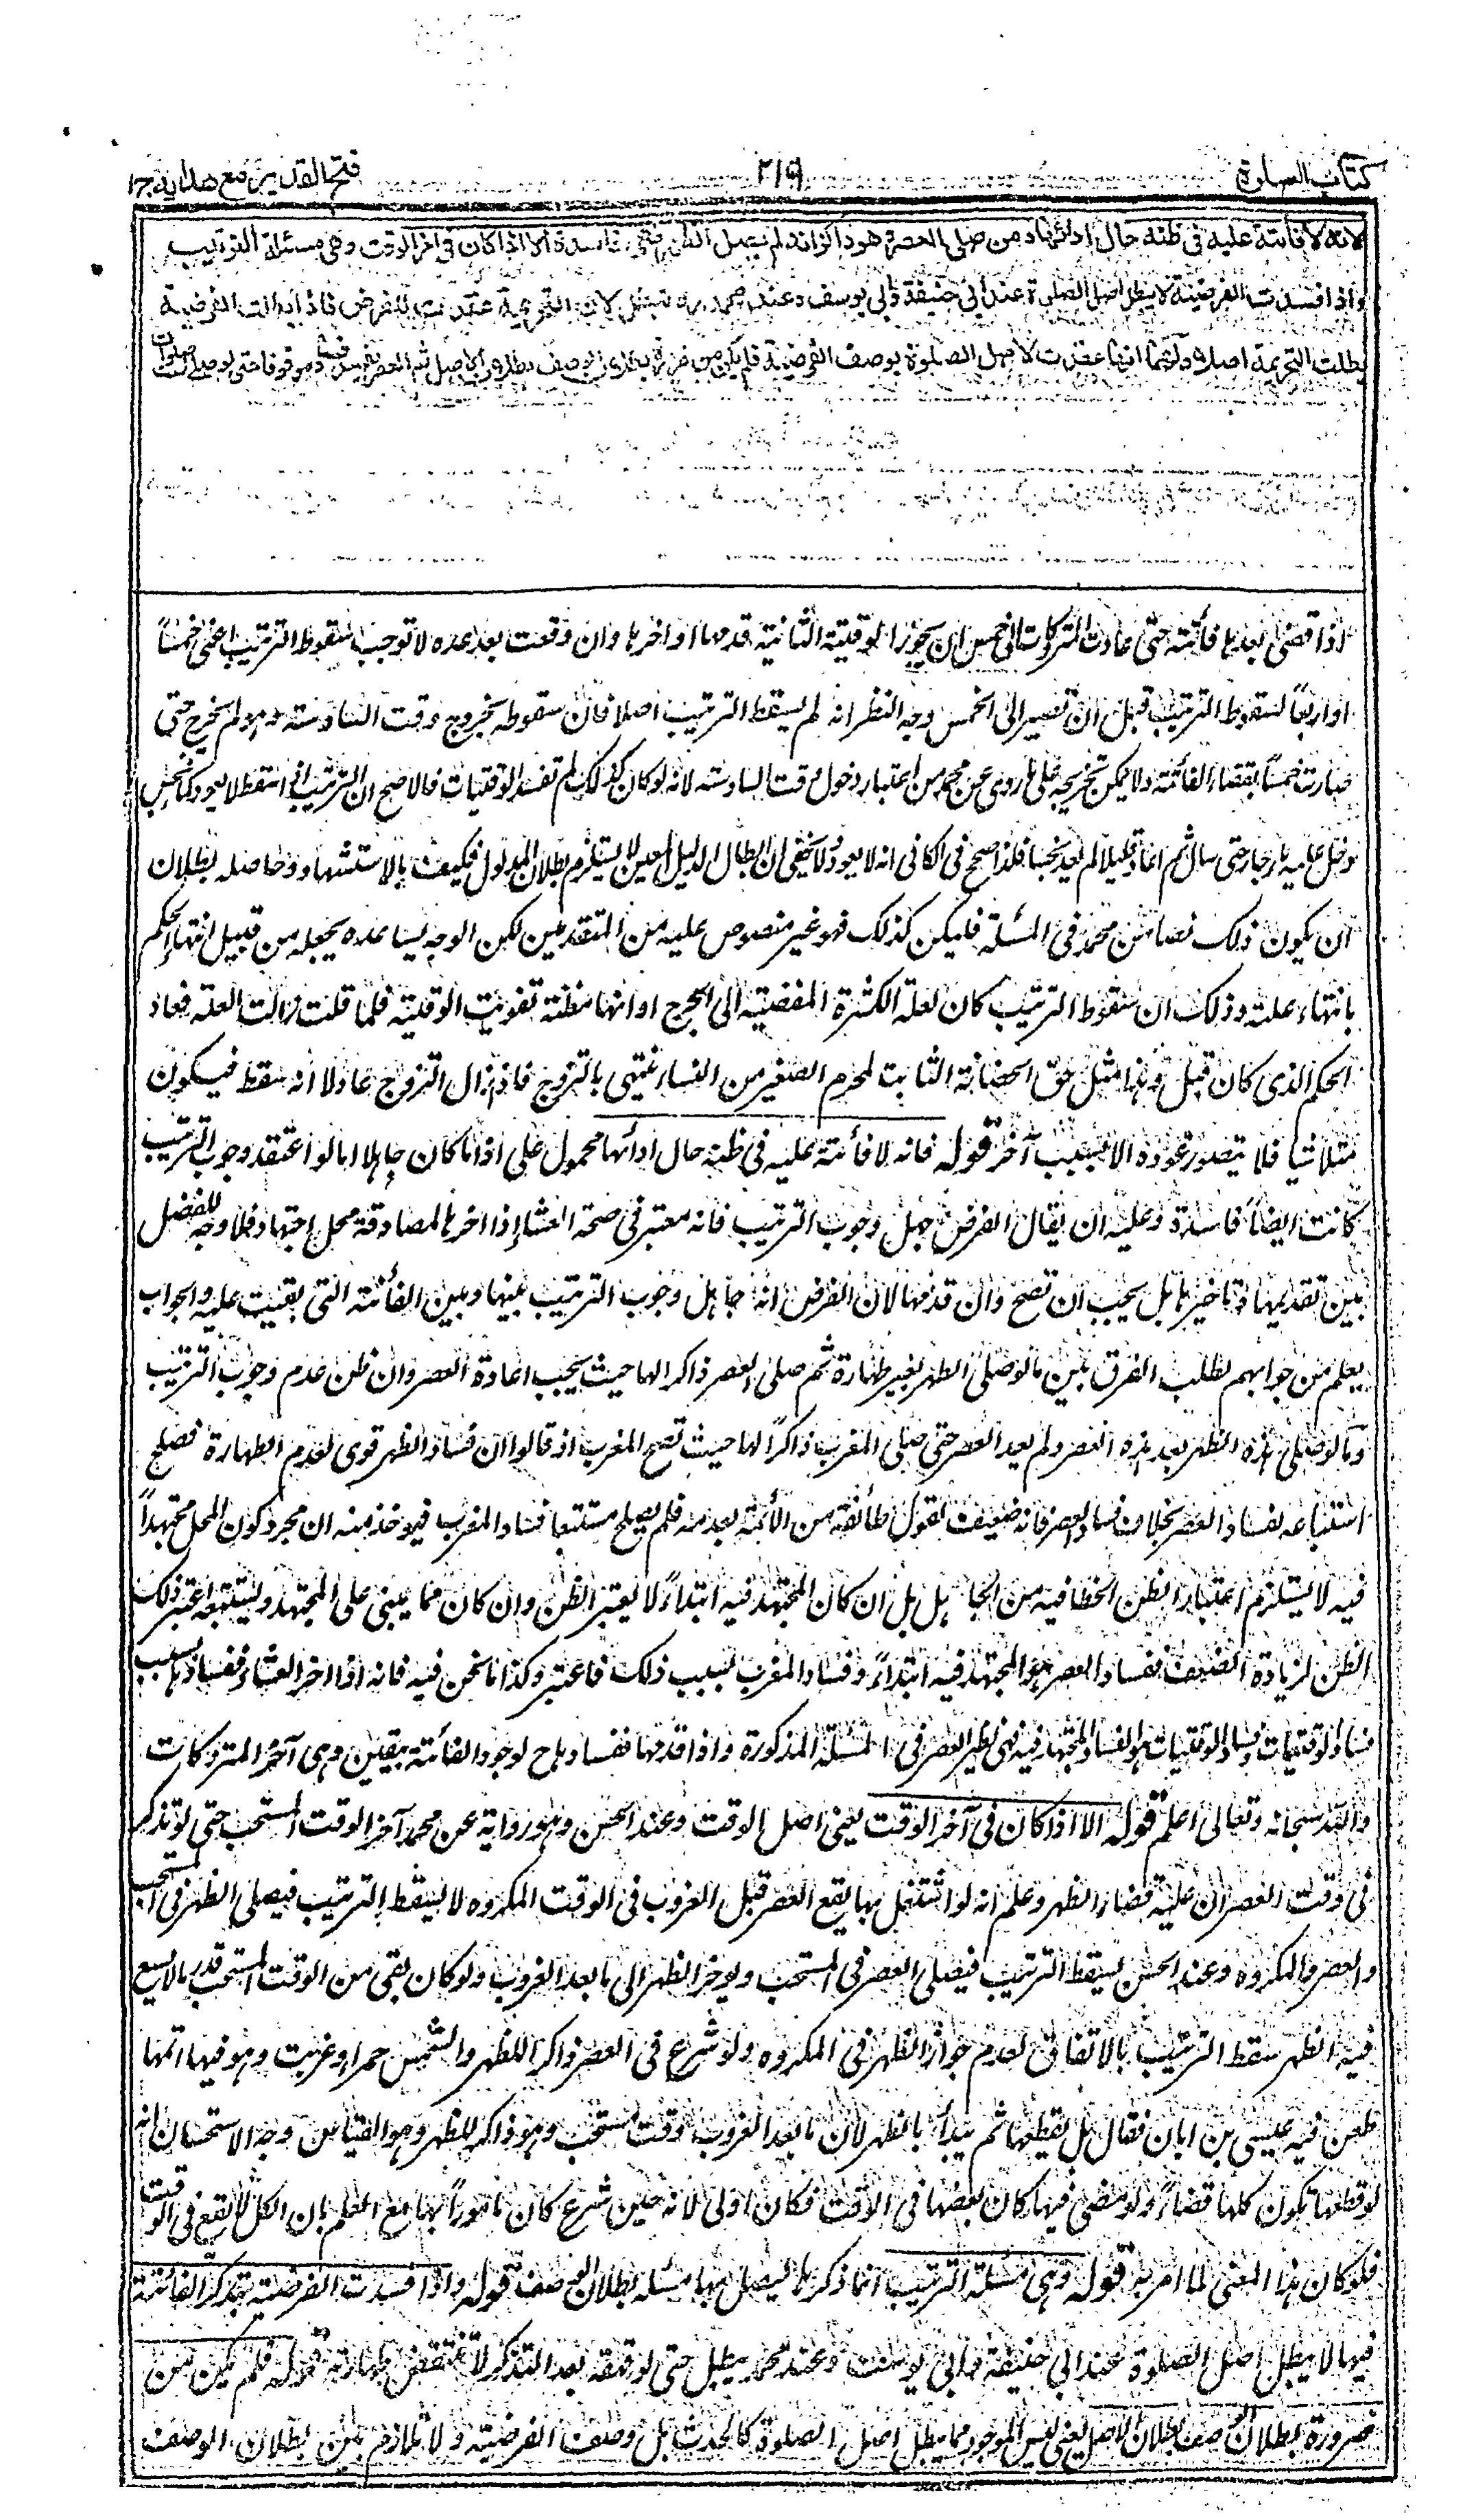 كتاب الصلوة
٢١٩
فتح القدير مع هدايه ج١
لانه لا فائتة عليه فى ظنه حال ادائها ومن صلى العصر وهو ذاكر انه لم يصل الظهر فهى فاسدة الا اذا كان فى اخر الوقت وهى مسئلة الترتيب
واذا فسدت الفرضية لا يبطل اصل الصلوة عند ابى حنيفة وابى يوسف وعند محمد يبطل لان التحريمة عقدت للفرض فاذا بطلت الفرضية
بطلت التحريمة اصلا ولهما انها عقدت لاصل الصلوة بوصف الفرضية فلم يكن من ضرورة بطلان الوصف بطلان الاصل ثم العصر يفسد فسادا موقوفا حتى لو صلى ست صلوات
اذا قضى بعدها فائتة حتى عادت المتروكات الى خمس ان يجوز الوقتية الثانية قدمها او اخرها وان وقعت بعد عده لا توجب سقوط الترتيب اعنى خمسا
او اربعا لسقوط الترتيب قبل ان تصير الى الخمس وجه النظر انه لم يسقط الترتيب اصلا فان سقوطه بخروج وقت السادسة وهو لم يخرج حتى
صارت خمسا بقضاء الفائتة ولا يمكن تخريجه على ما روى عن محمد من اعتبار دخول وقت السادسة لانه لو كان كذلك لم تفسد الوقتيات فالاصح ان الترتيب اذا سقط لا يعود كما نجس
دخل عليه ماء جار حتى سال ثم اعاد قليلا لم يعد نجسا فلذا صحح فى الكافى انه لا يعود ولا يخفى ان ابطال الدليل المعين لا يستلزم بطلان المدلول فكيف بالاستشهاد وحاصله بطلان
ان يكون ذلك نصا عن محمد فى المسئلة فليكن كذلك فهو غير منصوص عليه من المتقدمين لكن الوجه يساعده يجعله من قبيل انتهاء الحكم
بانتهاء علته وذلك ان سقوط الترتيب كان لعلة الكثرة المفضية الى الحرج او انها مظنة تفويت الوقتية فلما قلت زالت العلة فعاد
الحكم الذى كان قبل وهذا مثل حق الحضانة الثابت لمحرم الصغير من النساء ينتهى بالتزوج فاذا زال التزوج عاد لا انه سقط فيكون
متلاشيا فلا يتصور عوده الا بسبب آخر قوله فانه لا فائتة عليه فى ظنه حال ادائها محمول على اذا ما كان جاهلا اما لو اعتقد وجوب الترتيب
كانت ايضا فاسدة وعليه ان يقال الفرض جهل وجوب الترتيب فانه معتبر فى صحة العشاء اذا اخرها لمصادقة محل اجتهاد فلا وجه للفصل
بين تقديمها وتاخيرها بل يجب ان تصح وان قدمها لان الفرض انه جاهل وجوب الترتيب بينها وبين الفائتة التى بقيت عليه والجواب
يعلم من جوابهم لطلب الفرق بين ما لو صلى الظهر بغير طهارة ثم صلى العصر ذاكرا لها حيث يجب اعادة العصر وان ظن عدم وجوب الترتيب
وما لو صلى هذه الظهر بعد هذه العصر ولم يعد العصر حتى صلى المغرب ذاكرا لها حيث تصح المغرب اذ قالوا ان فساد الظهر قوى لعدم الطهارة فصلح
استتباعه لفساد العصر بخلاف فساد العصر فانه ضعيف لقول طائفة من الائمة بعدمه فلم يصلح مستتبعا فساد المغرب فيؤخذ منه ان مجرد كون المحل مجتهدا
فيه لا يستلزم اعتبار الظن الخطا فيه من الجاهل بل ان كان المجتهد فيه ابتداء لا يعتبر الظن وان كان مما يبنى على المجتهد ويستتبعه اعتبر ذلك
الظن لزيادة الضعف ففساد العصر هو المجتهد فيه ابتداء وفساد المغرب بسبب ذلك فاعتبر وكذا ما نحن فيه فانه اذا اخر العشاء ففسادها بسبب
فساد الوقتيات وفساد الوقتيات هو الفساد المجتهد فيه فهى نظير العصر فى المسئلة المذكورة واذا قدمها ففسادها ح لوجود الفائتة بيقين وهى آخر المتروكات
والله سبحانه وتعالى اعلم قوله الا اذا كان فى آخر الوقت يعنى اصل الوقت وعند الحسن وهو رواية عن محمد آخر الوقت المستحب حتى لو تذكر
فى وقت العصر ان عليه قضاء الظهر وعلم انه لو اشتغل بها يقع العصر قبل الغروب فى الوقت المكروه لا يسقط الترتيب فيصلى الظهر فى المستحب
والعصر فى المكروه وعند الحسن يسقط الترتيب فيصلى العصر فى المستحب ويؤخر الظهر الى ما بعد الغروب ولو كان بقى من الوقت المستحب قدر ما لا يسع
فيه الظهر سقط الترتيب بالاتفاق لعدم جواز الظهر فى المكروه ولو شرع فى العصر ذاكرا للظهر والشمس حمراء وغربت وهو فيها اتمها
طعن فيه عيسى بن ابان فقال بل يقطعها ثم يبدأ بالظهر لان ما بعد الغروب وقت مستحب وهو ذاكر للظهر وهو القياس وجه الاستحسان انه
لو قطعها يكون كلها قضاء ولو مضى فيها كان بعضها فى الوقت فكان اولى لانه حين شرع كان مامورا بها مع العلم بان الكل لا يقع فى الوقت
فلو كان هذا المعنى لما امر به قوله وهى مسئلة الترتيب انما ذكرها ليصل بها مسئلة بطلان الوصف قوله واذا فسدت الفرضية بتذكر الفائتة
فيها لا يبطل اصل الصلوة عند ابى حنيفة وابى يوسف وعند محمد يبطل حتى لو قهقه بعد التذكر لا تنتقض طهارته قوله فلم يكن من
ضرورة بطلان الوصف بطلان الاصل يعنى ليس الموجود مما يبطل اصل الصلوة كالحدث بل وصف الفرضية ولا تلازم بين بطلان الوصف